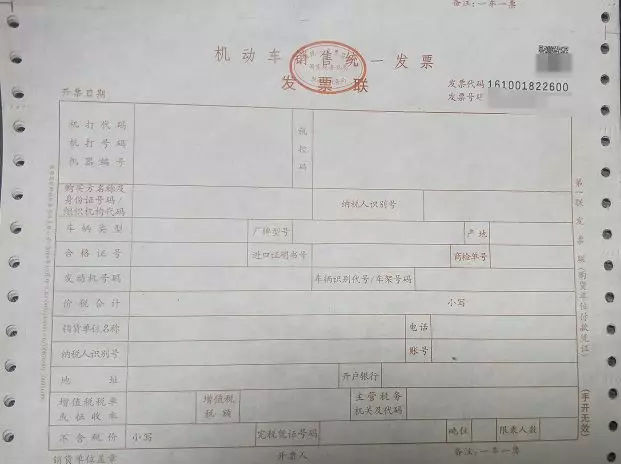 备注:一车一票
机动车销售统一发票
发票联
发票代码 161001822600
发票号码
开票日期
机打代码
机打号码
机器编号
税控码
购买方名称及
身份证号码/
组织机构代码
纳税人识别号
车辆类型
厂牌型号
产地
合格证号
进口证明书号
商检单号
发动机号码
车辆识别代号/车架号码
价税合计
小写
销货单位名称
电话
纳税人识别号
账号
地址
开户银行
增值税税率
或征收率
增值税
税额
主管税务
机关及代码
不含税价
小写
完税凭证号码
吨位
限乘人数
销货单位盖章
开票人
备注:一车一票
第一联 发票联(购货单位付款凭证)
(手开无效)